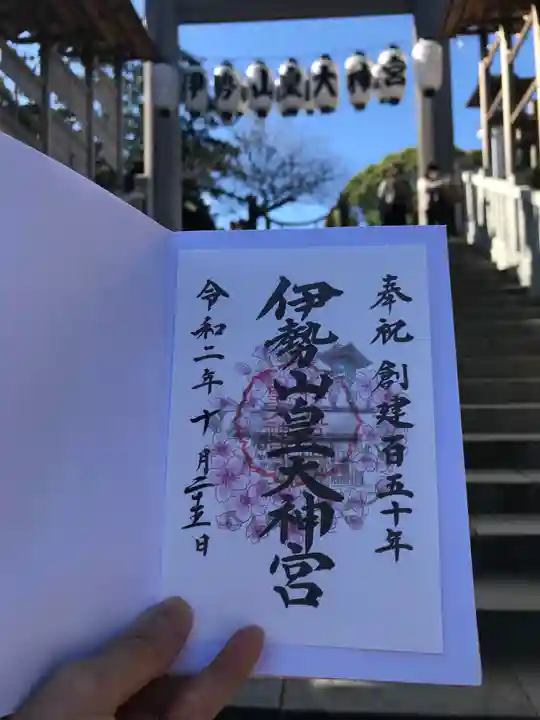 伊勢山皇大神宮
奉祝 創建百五十年
伊勢山皇大神宮
令和二年十月二十五日